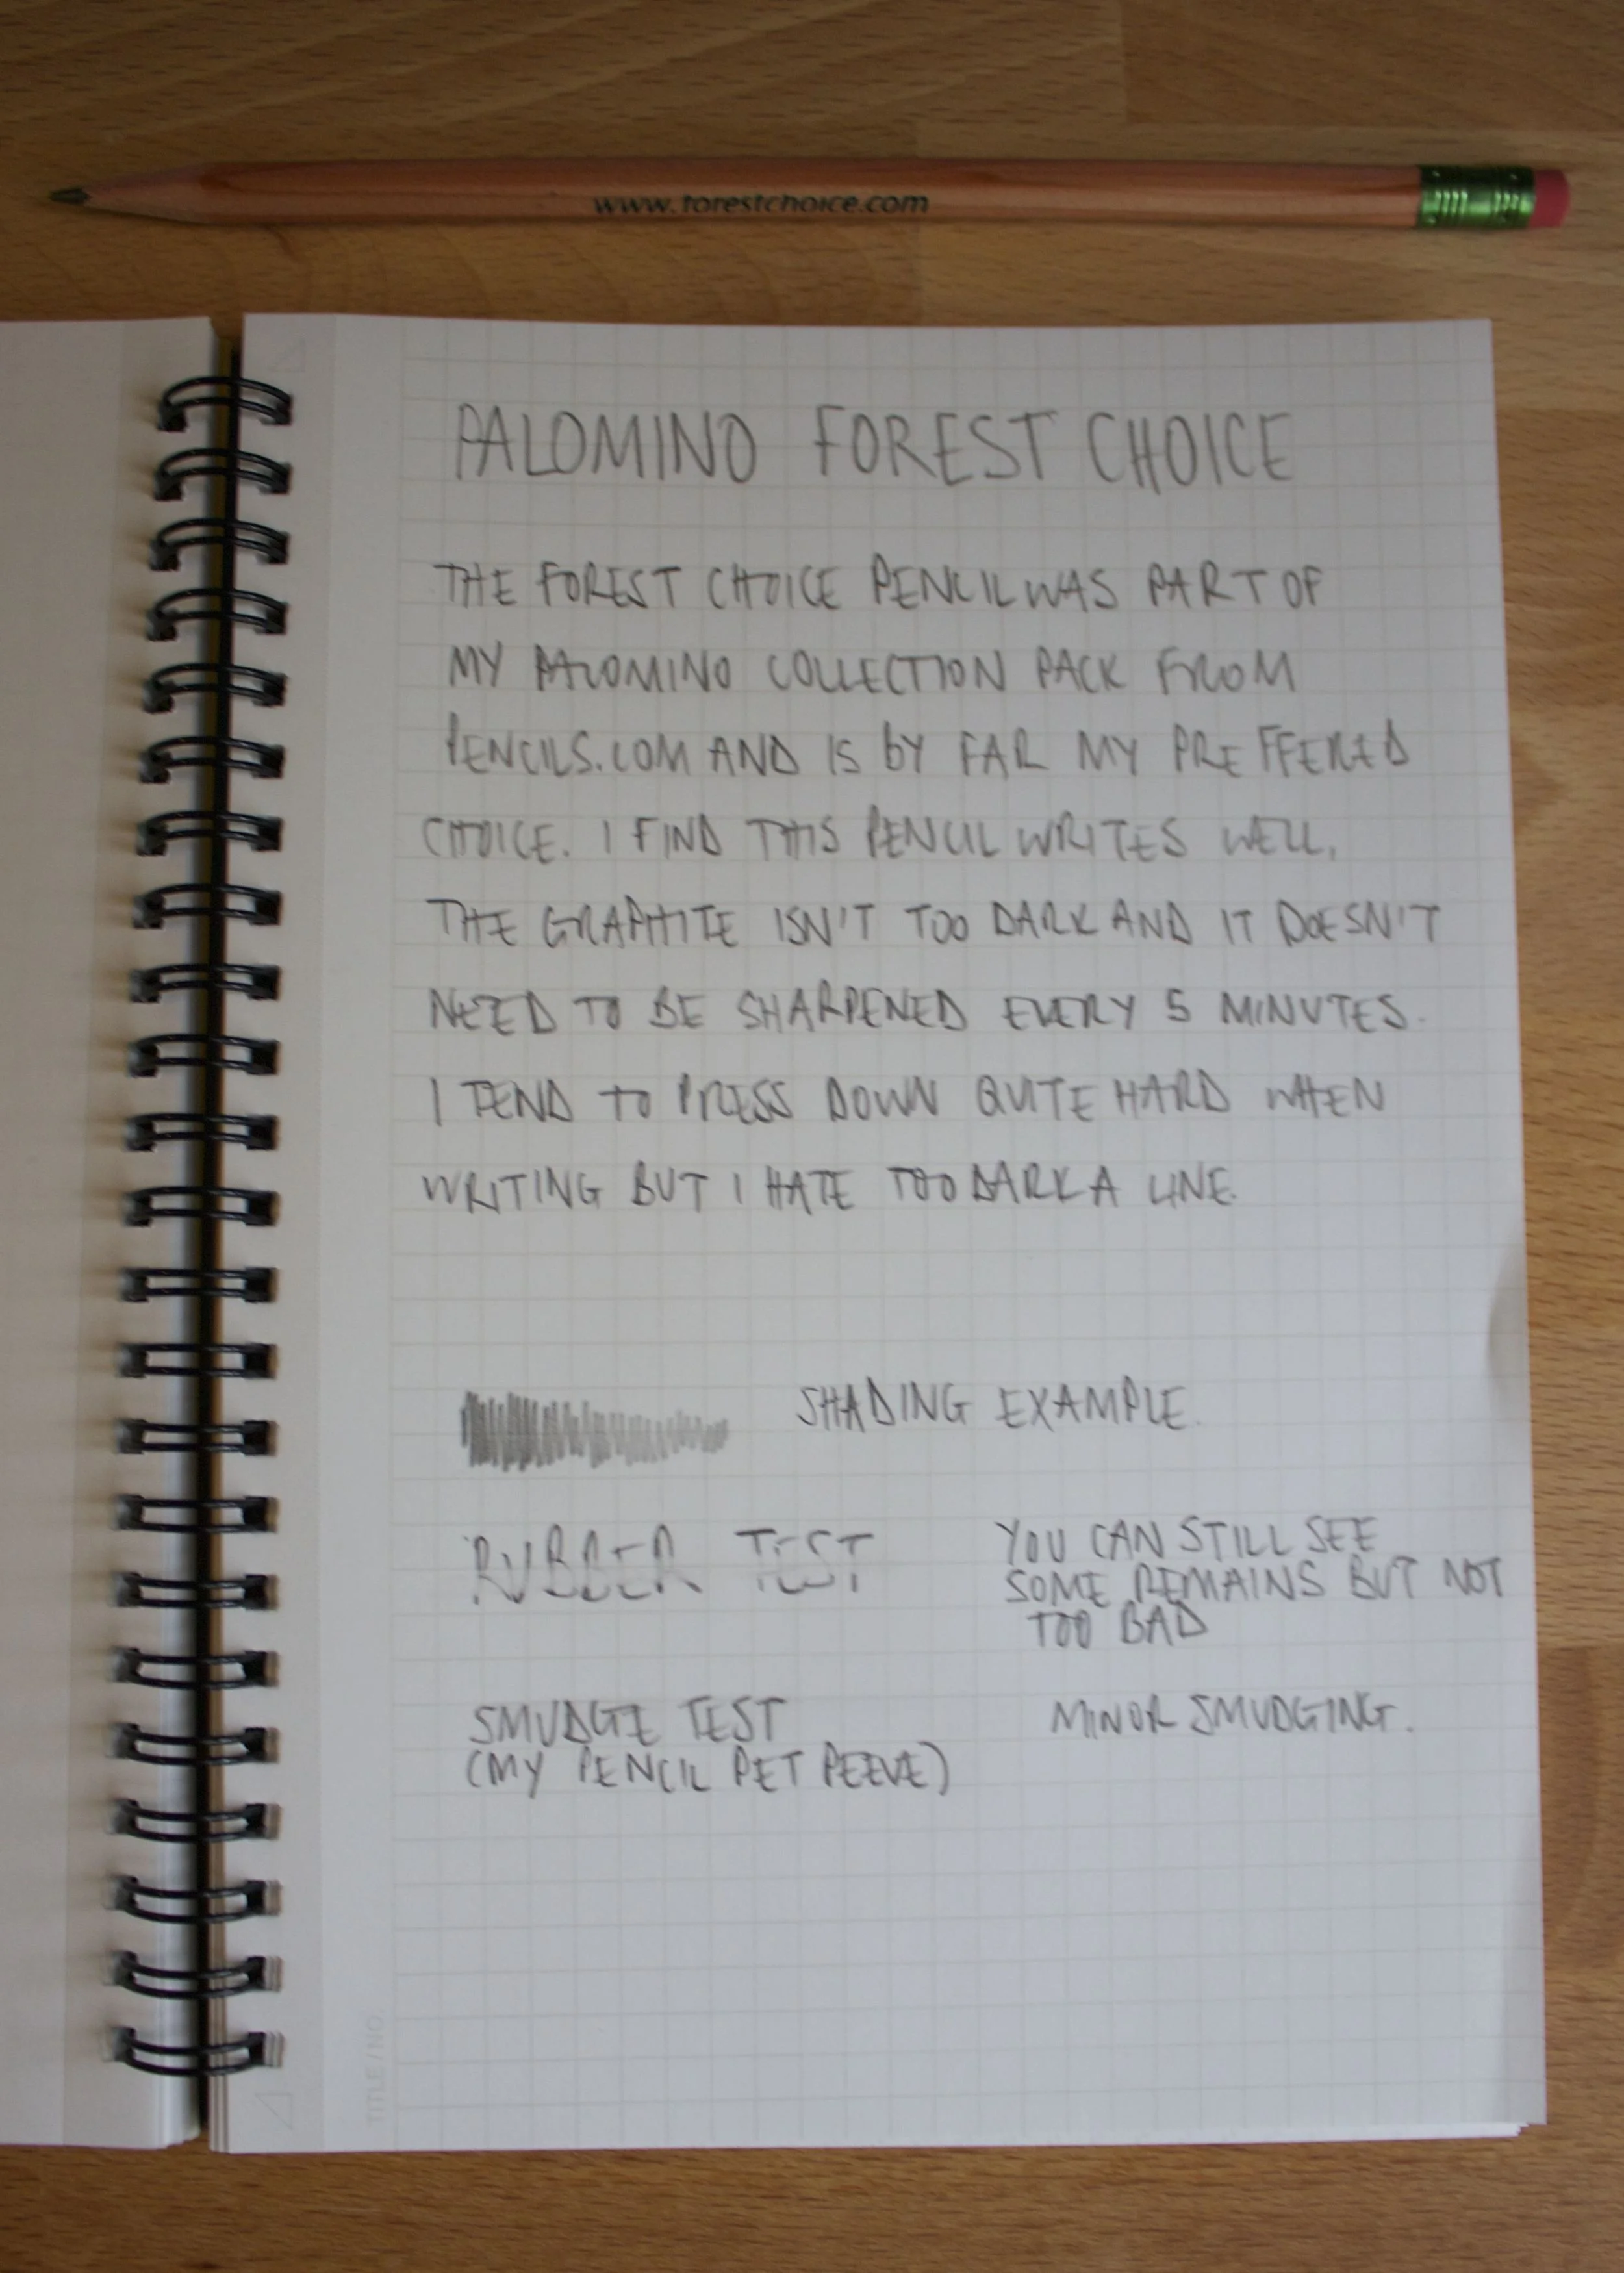 www.forestchoice.com
PALOMINO FOREST CHOICE
THE FOREST CHOICE PENCIL WAS PART OF
MY PALOMINO COLLECTION PACK FROM
PENCILS.COM AND IS BY FAR MY PREFFERED
CHOICE. I FIND THIS PENCIL WRITES WELL,
THE GRAPHITE ISN'T TOO DARK AND IT DOESN'T
NEED TO BE SHARPENED EVERY 5 MINUTES.
I TEND TO PRESS DOWN QUITE HARD WHEN
WRITING BUT I HATE TOO DARK A LINE.
SHADING EXAMPLE.
RUBBER TEST
YOU CAN STILL SEE
SOME REMAINS BUT NOT
TOO BAD
SMUDGE TEST
(MY PENCIL PET PEEVE)
MINOR SMUDGING.
TITLE / NO.